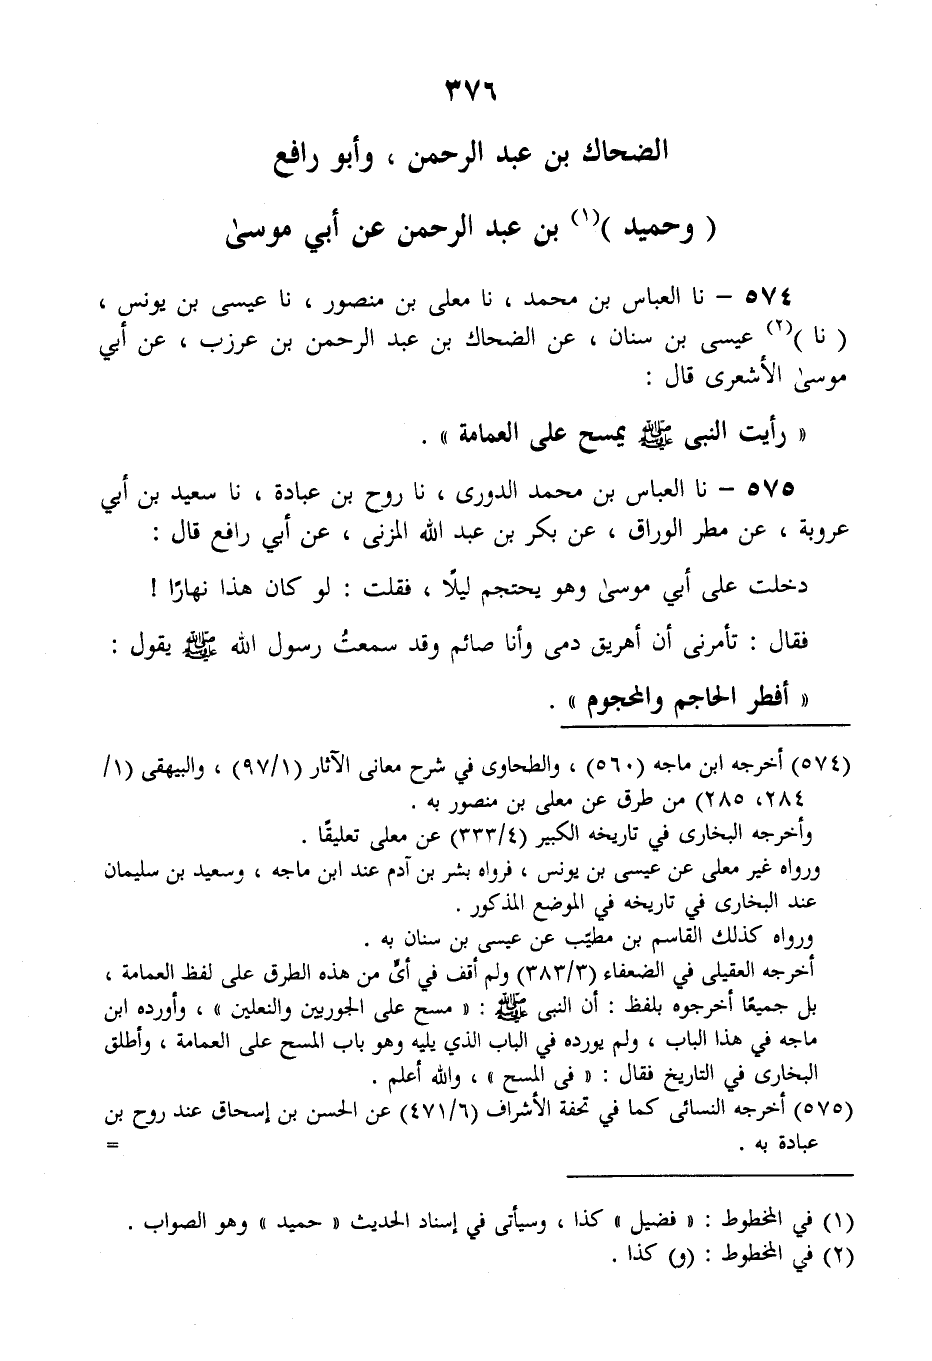 ٣٧٦
الضحاك بن عبد الرحمن ، وأبو رافع
( وحميد )(١) بن عبد الرحمن عن أبي موسىٰ
٥٧٤ - نا العباس بن محمد ، نا معلى بن منصور ، نا عيسى بن يونس ،
( نا )(٢) عيسى بن سنان ، عن الضحاك بن عبد الرحمن بن عرزب ، عن أبي
موسىٰ الأشعرى قال :
« رأيت النبى ﷺ يمسح على العمامة » .
٥٧٥ - نا العباس بن محمد الدورى ، نا روح بن عبادة ، نا سعيد بن أبي
عروبة ، عن مطر الوراق ، عن بكر بن عبد الله المزنى ، عن أبي رافع قال :
دخلت على أبي موسىٰ وهو يحتجم ليلًا ، فقلت : لو كان هذا نهارًا !
فقال : تأمرنى أن أهريق دمى وأنا صائم وقد سمعتُ رسول الله ﷺ يقول :
« أفطر الحاجم والمحجوم » .
(٥٧٤) أخرجه ابن ماجه (٥٦٠) ، والطحاوى في شرح معانى الآثار (٩٧/١) ، والبيهقى (١/
٢٨٤، ٢٨٥) من طرق عن معلى بن منصور به .
وأخرجه البخارى في تاريخه الكبير (٣٣٣/٤) عن معلى تعليقًا .
ورواه غير معلى عن عيسى بن يونس ، فرواه بشر بن آدم عند ابن ماجه ، وسعيد بن سليمان
عند البخارى في تاريخه في الموضع المذكور .
ورواه كذلك القاسم بن مطيّب عن عيسى بن سنان به .
أخرجه العقيلى في الضعفاء (٣٨٣/٣) ولم أقف في أىٍّ من هذه الطرق على لفظ العمامة ،
بل جميعًا أخرجوه بلفظ : أن النبى ﷺ : « مسح على الجوربين والنعلين » ، وأورده ابن
ماجه في هذا الباب ، ولم يورده في الباب الذي يليه وهو باب المسح على العمامة ، وأطلق
البخارى في التاريخ فقال : « فى المسح » ، والله أعلم .
(٥٧٥) أخرجه النسائى كما في تحفة الأشراف (٤٧١/٦) عن الحسن بن إسحاق عند روح بن
عبادة به . =
(١) في المخطوط : « فضيل » كذا ، وسيأتى في إسناد الحديث « حميد » وهو الصواب .
(٢) في المخطوط : (و) كذا .